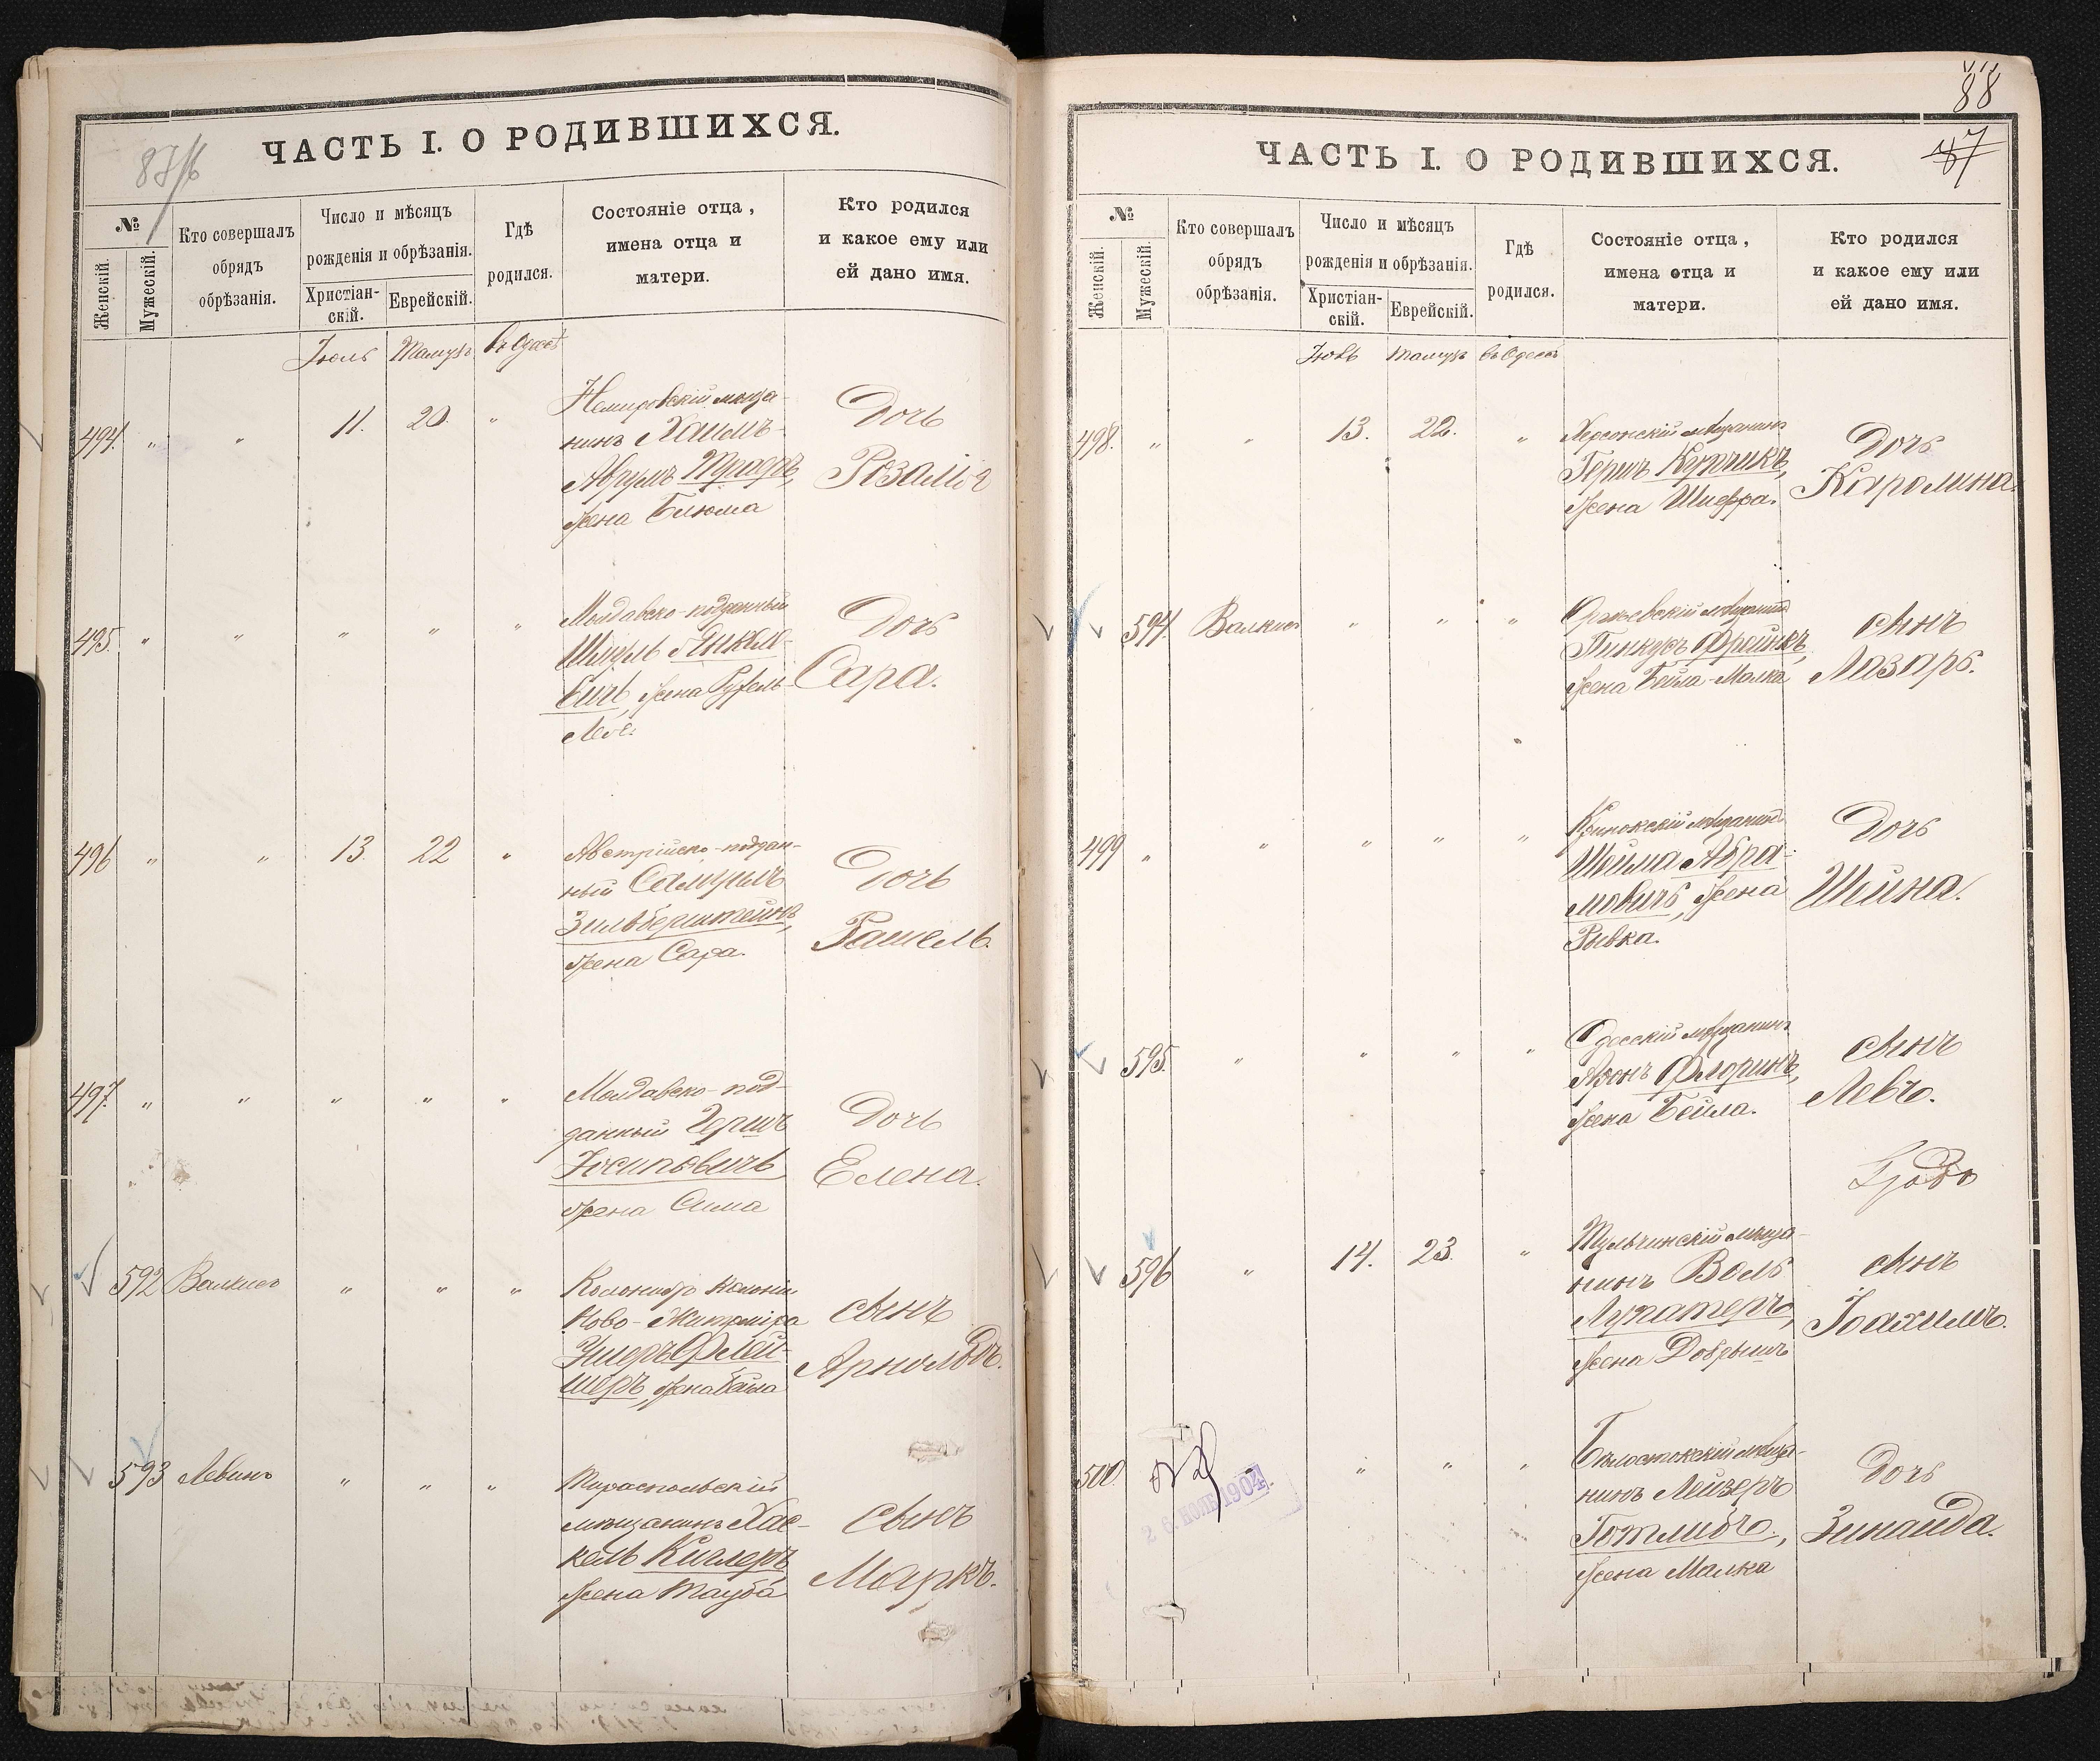 ЧАСТЬ I. О РОДИВШИХСЯ.
№
Женскій.
Мужескій.
Кто совершалъ
обрядъ
обрѣзанія.
Число и мѣсяцъ
рожденія и обрѣзанія.
Христіан-
скій.
Еврейскій.
Гдѣ
родился.
Состояніе отца,
имена отца и
матери.
Кто родился
и какое ему или
ей дано имя.
Іюль Тамузъ въ Одессѣ
494. " " 11. 20. "
Немировскій мѣща-
нинъ Хаимъ-
Абрумъ
жена Блюма
Дочь
Розалія
495. " " " " "
Молдавско-подданный
Шмуль Янкел-
евичъ, жена
Дочь
Сара.
496 " " 13. 22 "
Австрійско-поддан-
ный Самуилъ
Зильберштейнъ,
жена Сара.
Дочь
Рашель.
497. " " " " "
Молдавско-под-
данный Гершъ
Іосиповичъ,
жена Сима
Дочь
Елена.
592 Валкисъ " " "
Колонистъ колоніи
Ново-Житоміра
Ушеръ Флей-
шеръ, жена Бейла
сынъ
Арнольдъ.
593 Левинъ " " "
Тираспольскій
мѣщанинъ Хас-
кель Киглеръ,
жена Тауба
сынъ
Маркъ.
88
87
ЧАСТЬ I. О РОДИВШИХСЯ.
№
Женскій.
Мужескій.
Кто совершалъ
обрядъ
обрѣзанія.
Число и мѣсяцъ
рожденія и обрѣзанія.
Христіан-
скій.
Еврейскій.
Гдѣ
родился.
Состояніе отца,
имена отца и
матери.
Кто родился
и какое ему или
ей дано имя.
Іюль Тамузъ въ Одессѣ
498. " " 13. 22. "
Херсонскій мѣщанинъ
Гершъ Купчикъ,
жена Шифра.
Дочь
Каролина.
594. Валкисъ " " "
Оргѣевскій мѣщанинъ
Пинкусъ Френкъ,
жена Бейла-Малка
сынъ
Лазарь.
499 " " " " "
Кринокскій мѣщанинъ
Шейма Абра-
мовичъ, жена
Рывка.
Дочь
Шейна.
595. " " " "
Одесскій мѣщанинъ
Аронъ Флоринъ,
жена Бейла.
сынъ
Левъ.
596 " 14. 23. "
Тульчинскій мѣща-
нинъ Воль
жена Добрышъ
сынъ
Іоахимъ.
500. " " "
26 ІЮЛЬ 1904
Бѣлостокскій мѣща-
нинъ Лейзеръ
Готлибъ,
жена Малка
Дочь
Зинаида.